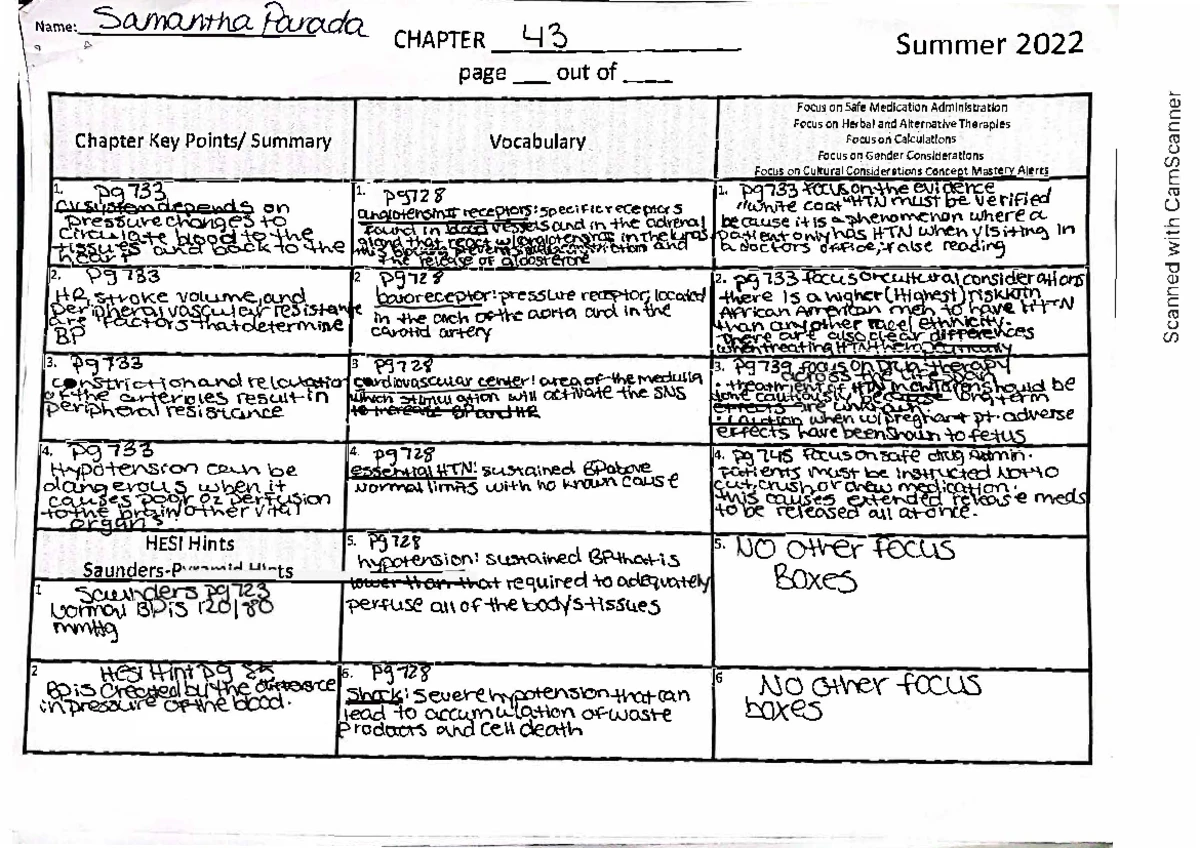 Name: Samantha Parada
CHAPTER 43
Summer 2022
page ___ out of ____
Chapter Key Points/ Summary
Vocabulary
Focus on Safe Medication Administration
Focus on Herbal and Alternative Therapies
Focus on Calculations
Focus on Gender Considerations
Focus on Cultural Considerations Concept Mastery Alerts
1. pg 733
CV system depends on
pressure changes to
circulate blood to the
tissues and back to the
heart
1. pg 728
angiotensin II receptors: specific receptors
found in blood vessels and in the adrenal
gland that react w/ angiotensin II
the release of aldosterone
1. pg 733 focus on the evidence
"white coat" HTN must be verified
because it is a phenomenon where a
patient only has HTN when visiting in
a doctors office, false reading
2. pg 733
HR, stroke volume, and
peripheral vascular resistance
are factors that determine
BP
2 pg 728
baroreceptor: pressure receptor, located
in the arch of the aorta and in the
carotid artery
2. pg 733 focus on cultural considerations
there is a higher (highest) risk in
African American men to have HTN
than any other race/ ethnicity.
there are also clear differences
when treating HTN
3. pg 733
constriction and relaxation
of the arterioles result in
peripheral resistance
3 pg 728
cardiovascular center: area of the medulla
which stimulation will activate the SNS
to increase BP and HR
3. pg 739 focus on drug therapy
across the lifespan
• treatment of HTN in children should be
done cautiously because long term
effects are unknown
• caution when w/ pregnant pt. adverse
effects have been shown to fetus
4. pg 733
Hypotension can be
dangerous when it
causes poor O2 perfusion
to the brain/other vital
organs.
4. pg 728
essential HTN: sustained BP above
normal limits with no known cause
4. pg 745 focus on safe drug Admin.
Patients must be instructed NOT to
cut, crush or chew medication.
this causes extended release meds
to be released all at once.
HESI Hints
Saunders-Pyramid Hints
5. pg 728
hypotension: sustained BP that is
lower than that required to adequately
perfuse all of the body's tissues
5. NO other focus
Boxes
1 Saunders pg 723
Normal BP is 120/80
mmHg
2 HESI Hint pg
BP is created by the difference
in pressure of the blood.
6. pg 728
Shock: severe hypotension that can
lead to accumulation of waste
products and cell death
6 NO other focus
boxes
Scanned with CamScanner